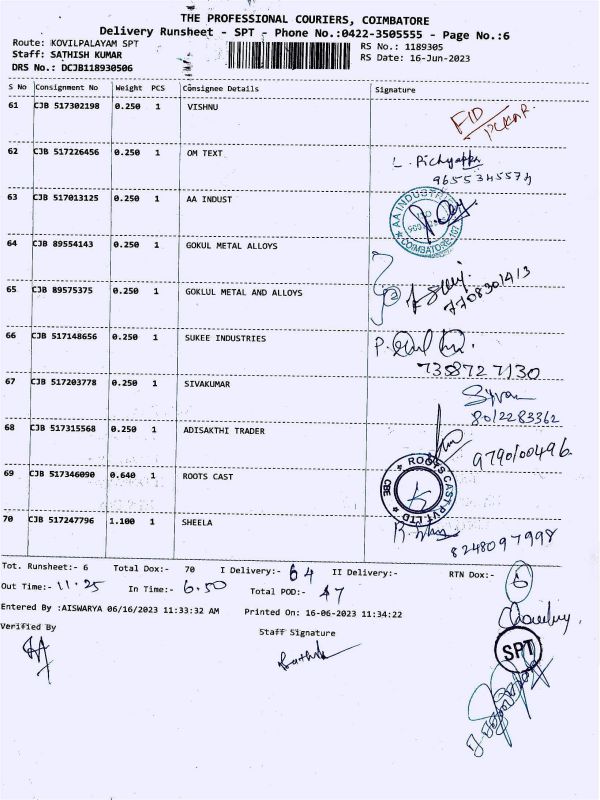 THE PROFESSIONAL COURIERS, COIMBATORE
Delivery Runsheet - SPT - Phone No.:0422-3505555 - Page No.:6
Route: KOVILPALAYAM SPT
RS No.: 1189305
Staff: SATHISH KUMAR
RS Date: 16-Jun-2023
DRS No.: DCJB118930506
S No Consignment No Weight PCS Consignee Details Signature
61 CJB 517302198 0.250 1 VISHNU
62 CJB 517226456 0.250 1 OM TEXT
L. Pichyappa
9655345574
63 CJB 517013125 0.250 1 AA INDUST
AA INDUSTR
COIMBATORE
64 CJB 89554143 0.250 1 GOKUL METAL ALLOYS
65 CJB 89575375 0.250 1 GOKLUL METAL AND ALLOYS
2
7708301413
66 CJB 517148656 0.250 1 SUKEE INDUSTRIES
7358727130
67 CJB 517203778 0.250 1 SIVAKUMAR
8012283362
68 CJB 517315568 0.250 1 ADISAKTHI TRADER
9790100496
69 CJB 517346090 0.640 1 ROOTS CAST
ROOTS CAST PVT.LTD
CBE
70 CJB 517247796 1.100 1 SHEELA
8248097998
Tot. Runsheet:- 6 Total Dox:- 70 I Delivery:- 64 II Delivery:- RTN Dox:- 6
Out Time:- 11.25 In Time:- 6.50 Total POD:- 47
Entered By :AISWARYA 06/16/2023 11:33:32 AM Printed On: 16-06-2023 11:34:22
Verified By
Staff Signature
SPT